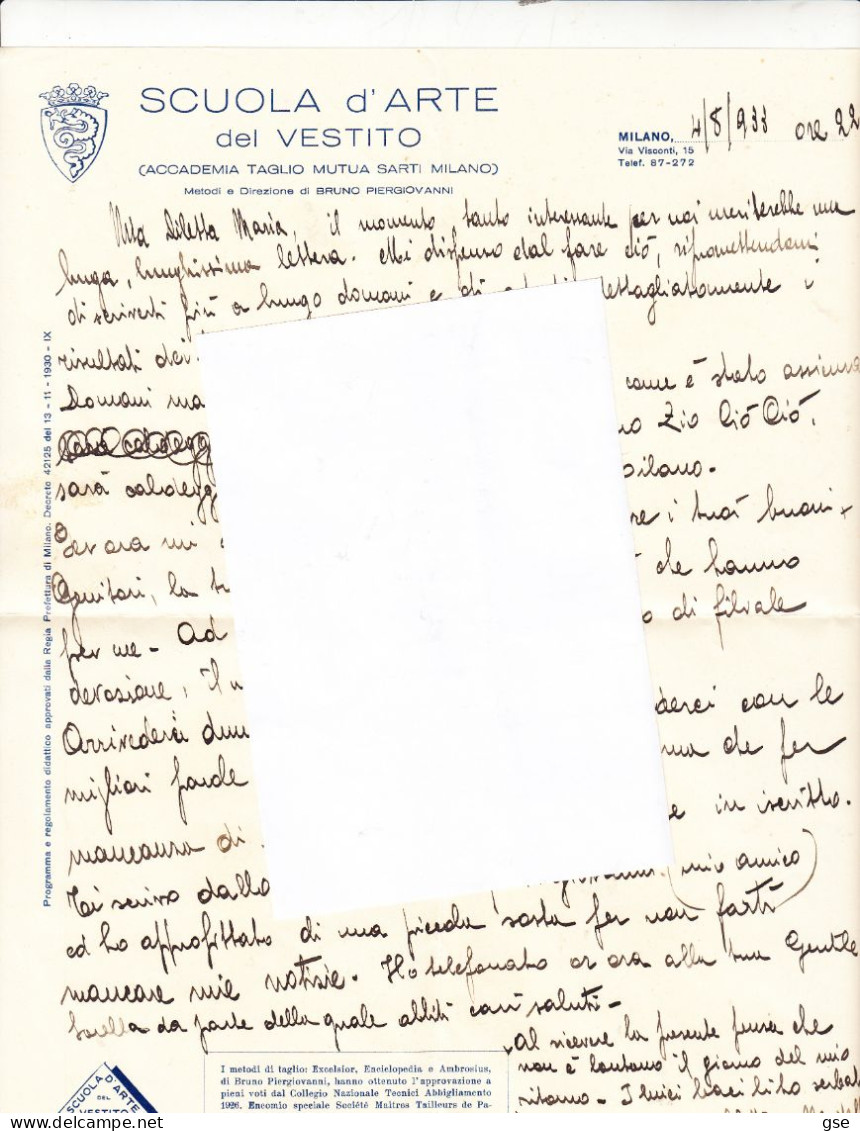 SCUOLA d'ARTE
del VESTITO
(ACCADEMIA TAGLIO MUTUA SARTI MILANO)
Metodi e Direzione di BRUNO PIERGIOVANNI
MILANO, 4/8/933 ore 22
Via Visconti, 15
Telef. 87-272
Mia Diletta Maria, il momento tanto interessante per noi meriterebbe una
lunga, lunghissima lettera. Mi dispenso dal fare ciò, ripromettendomi
di scriverti più a lungo domani e di dettagliatamente i
risultati dei
come è stato assicura
Domani ma
Zio Ciò Ciò.
sarà caldegg
Milano.
Per ora mi
re i tuoi buoni
Genitori, la t
che hanno
per me - Ad
di filiale
devozione, il
Arrivederci
derci con le
migliori parole
ma che per
mancanza di
e in iscritto.
Ti scrivo dallo
(mio amico)
ed ho approfittato di una piccola sosta per non farti
mancare mie notizie. Ho telefonato or ora alla tua Gentile
Sorella da parte della quale abbiti cari saluti -
Al ricevere la presente pensa che
non è lontano il giorno del mio
ritorno - I miei baci li ho serbat
Programma e regolamento didattico approvati dalla Regia Prefettura di Milano. Decreto 42125 del 13 - 11 - 1930 - IX
SCUOLA D'ARTE
DEL
VESTITO
I metodi di taglio: Excelsior, Enciclopedia e Ambrosius,
di Bruno Piergiovanni, hanno ottenuto l'approvazione a
pieni voti dal Collegio Nazionale Tecnici Abbigliamento
1926. Encomio speciale Société Maîtres Tailleurs de Pa-
gse